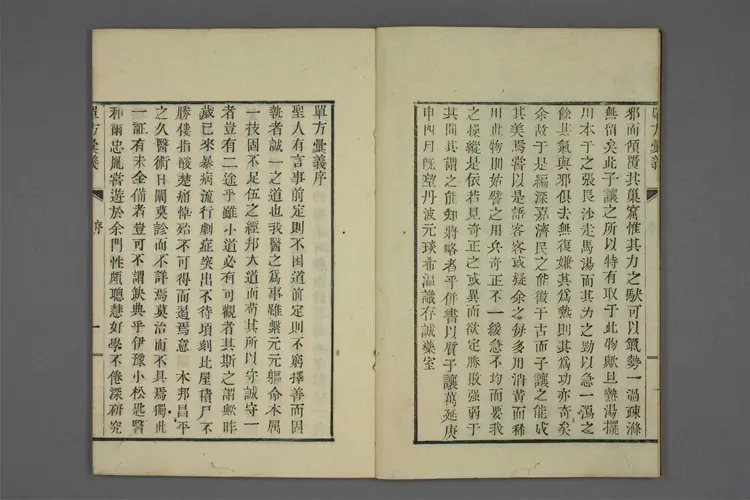 邪而傾覆其巢窩惟其力之馱可以氣勢一過疎滌
無留矣此子讓之所以特有取于此物歟且熱湯擢
用本于之張長沙走馬湯而其力之勁以急一瀉之
餘其氣與邪俱去無復嫌其爲熱則其爲功亦奇矣
余故于是編深嘉濟民之能徵于古而子讓之能成
其美焉嘗以是語客客或疑余之每多用消黄而稀
用此物則始譬之用兵奇正不一緩急不均而要我
之操縱是依若見奇正之或異而欲定勝敗强弱于
其間其謂之能知將略者乎併書以質子讓萬延庚
申四月旣望丹波元琰希温識存誠藥室
單方彙義序
聖人有言事前定則不困道前定則不窮擇善而固
執者誠一之道也我醫之爲事雖繫元元軀命本属
一技固不足伍之經邦大道而苟其所以守誠守一
者豈有二途乎雖小道必有可觀者其斯之謂歟昨
歲已來暴病流行劇症突出不待頃刻比屋積尸不
勝僂指酸楚痛悼殆不可得而過焉意 本邦昌平
之久醫術日闢莫診而不詳焉莫治而不具焉獨此
一証有未全備者豈可不謂缺典乎伊豫小松匙醫
利爾忠胤嘗遊於余門性頗聰慧好學不倦深研究
單方彙義
序
一
單方彙義